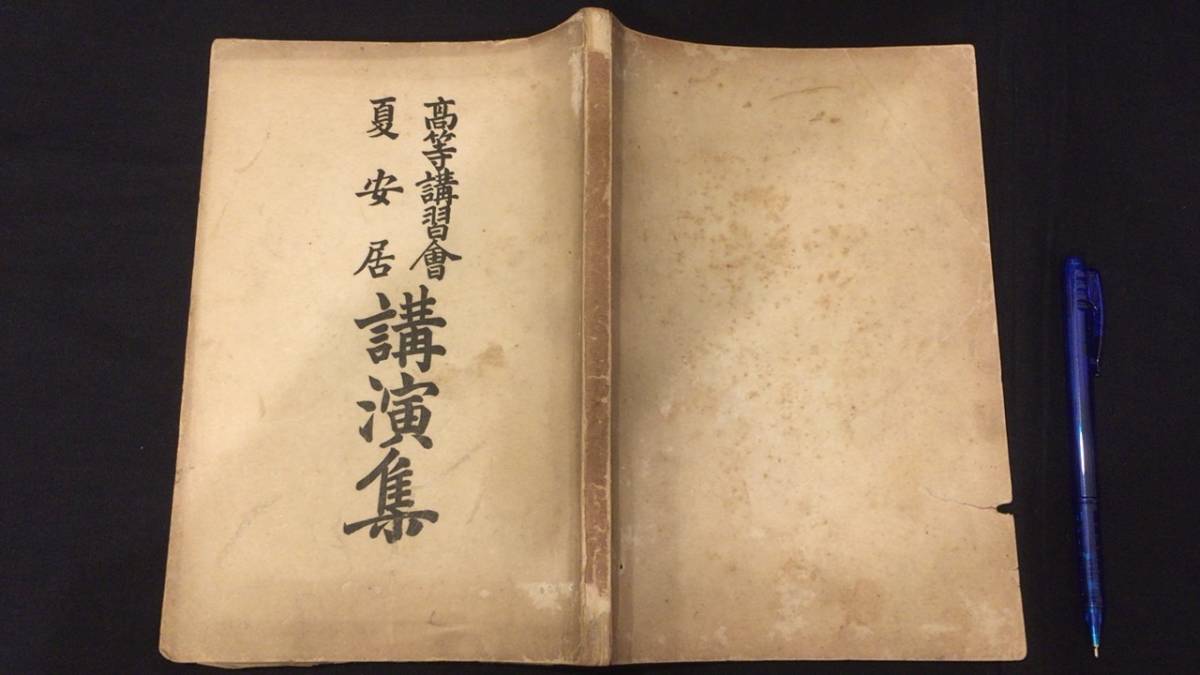 高等講習會
夏安居
講演集